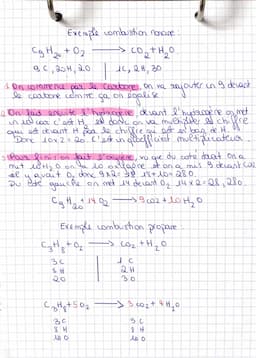 Exemple combustion nonane :
C9 H20 + O2 → CO2 + H2O
9C, 20H, 2O | 1C, 2H, 3O
1 On commence par le carbone, on va rajouter un 9 devant
le carbone comme ça on égalise.
2 On fait ensuite l'hydrogène devant l'hydrogène on met
un 10 car c'est H2 et donc on va multiplier le chiffre
qui est devant H par le chiffre qui est en bas de H.
Donc 10 x 2 = 20. C'est un coefficient multiplicateur.
3 Pour finir on fait l'oxygène, vu que du coté droit on a
mit 10 H2O on a 10 oxygène et on a mis 9 devant CO2
et y avait O2 donc 9 x 2 = 18 18 + 10 = 28O.
Du côté gauche on met 14 devant O2 14 x 2 = 28, 28O.
C9 H20 + 14 O2 → 9 CO2 + 10 H2O
Exemple combustion propane :
C3H8 + O2 → CO2 + H2O
3C 1C
8H 2H
2O 3O
C3H8 + 5O2 → 3 CO2 + 4 H2O
3C 3C
8H 8H
10 O 10 O